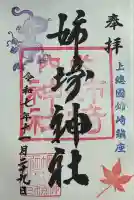 奉拝
上総國姉崎鎮座
姉埼神社
令和七年十一月二十九日